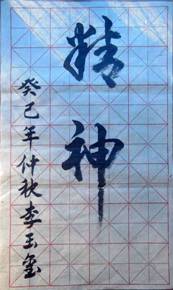 精神
癸巳年仲秋李玉玺